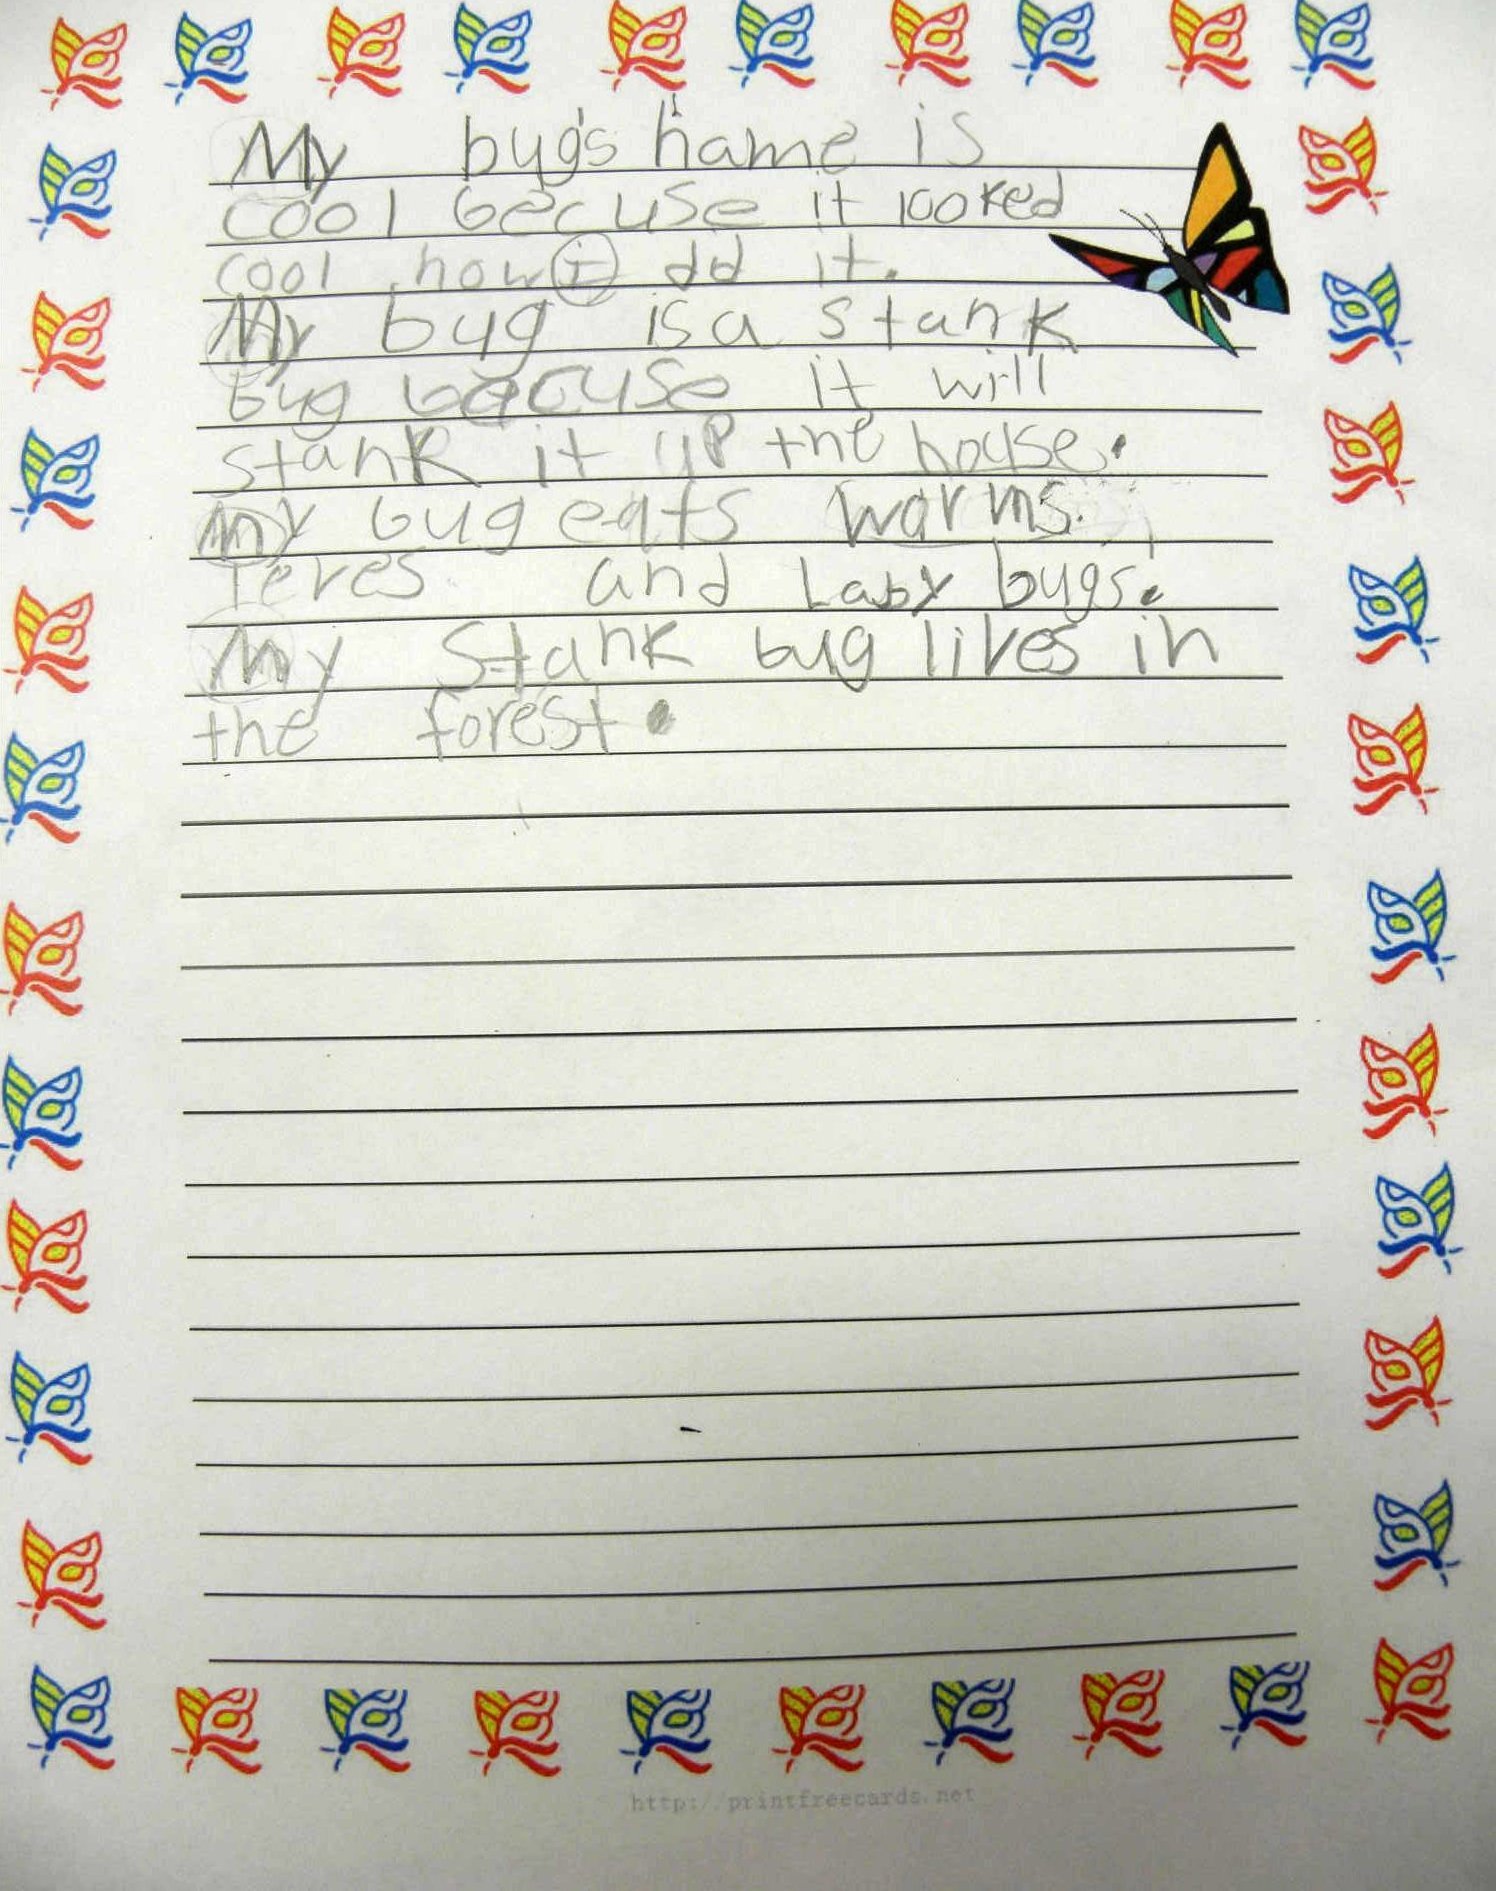 My bug's name is
cool becuse it looked
cool how I dd it.
My bug is a stank
bug becuse it will
stank it up the house.
My bug eats warms.
leves and Laby bugs.
My Stank bug lives in
the forest.
http://printfreecards.net